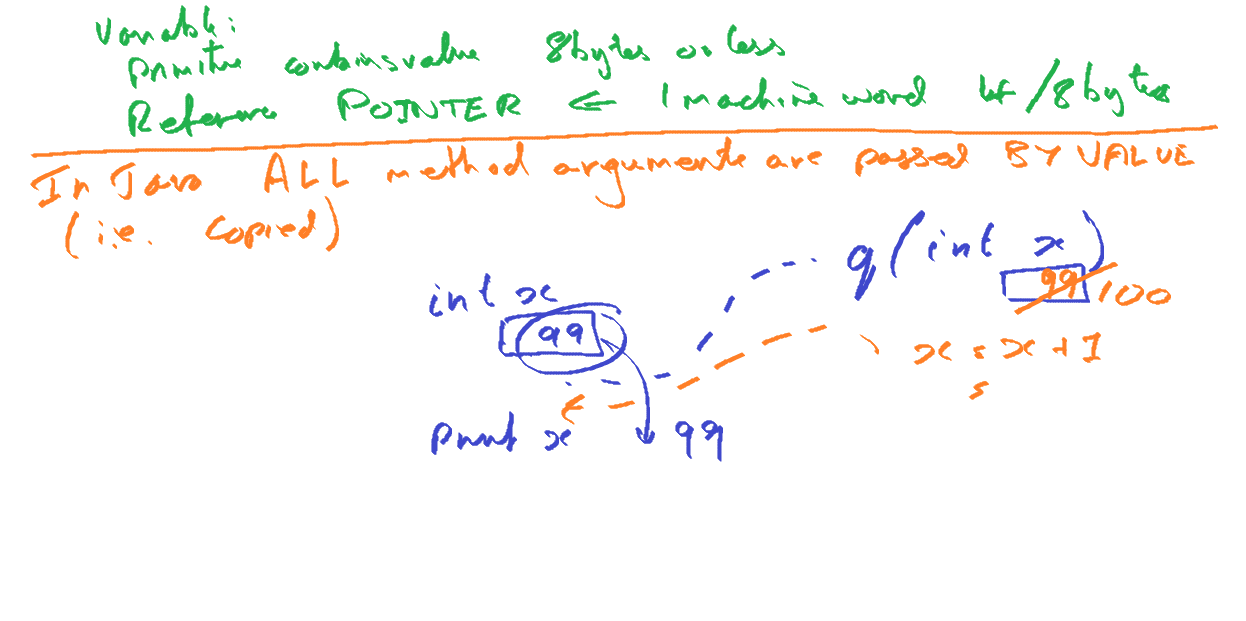 Variable:
Primitive contains value 8bytes or less
Reference POINTER ← 1 machine word 4/8bytes
In Java ALL method arguments are passed BY VALUE
(i.e. copied)
q(int x)
int x
99 100
99
x = x + 1
print x 99